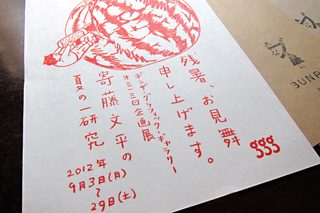 残暑、お見舞
申し上げます。
ギンザ・グラフィック・ギャラリー
第三二三回企画展
寄藤文平の
夏の一研究
2012年
9月3日(月)
〜
29日(土)
ggg